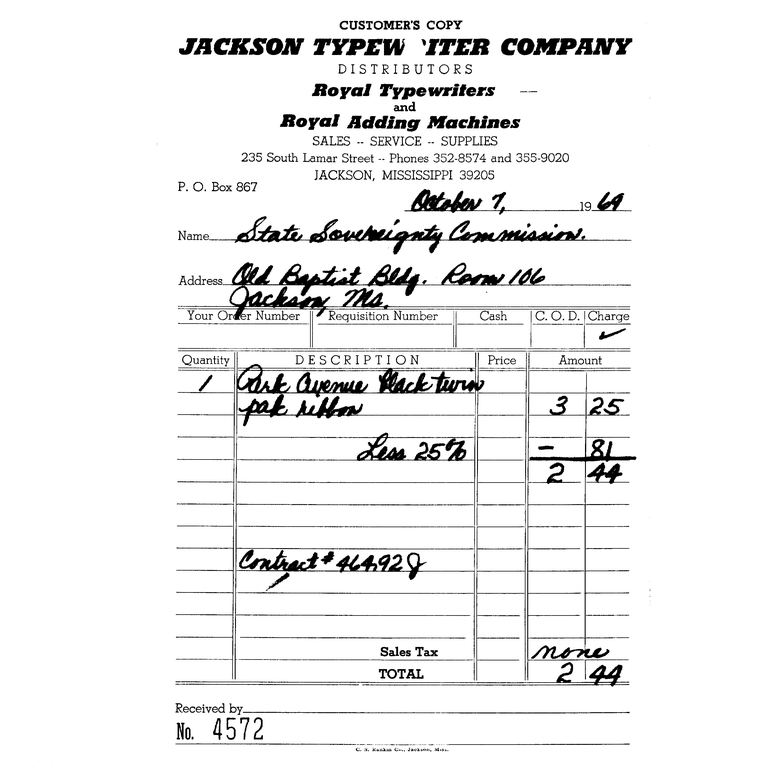 CUSTOMER'S COPY
JACKSON TYPEW ITER COMPANY
DISTRIBUTORS
Royal Typewriters --
and
Royal Adding Machines
SALES -- SERVICE -- SUPPLIES
235 South Lamar Street -- Phones 352-8574 and 355-9020
JACKSON, MISSISSIPPI 39205
P. O. Box 867
October 7, 1969
Name State Sovereignty Commission.
Address Old Baptist Bldg. Room 106
Jackson, Ms.
Your Order Number Requisition Number Cash C. O. D. Charge
✓
Quantity DESCRIPTION Price Amount
1 Park Avenue black twin
pak ribbon 3 25
Less 25% - 81
2 44
Contract # 464,92
Sales Tax none
TOTAL 2 44
Received by
No. 4572
C. S. Rankin Co., Jackson, Miss.